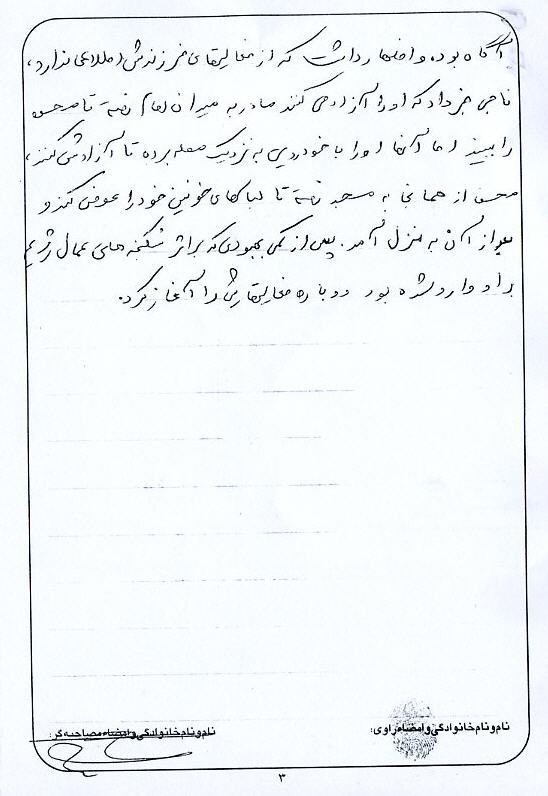 آگاه بوده و اظهار داشت که از فعالیتهای فرزندش اطلاعی ندارد،
ناجی خبر داد که او را آزاد می کنند مادر به میدان امام رفته تا محسن
را ببیند اما آنها او را با خودرویی به نزدیک محله برده تا آزادش کنند،
محسن از همانجا به مسجد رفته تا لباسهای خونین خود را عوض کند و
بعد از آن به منزل آمد. پس از کمی بهبودی که بر اثر شکنجه های عمال رژیم
بر او وارد شده بود دوباره فعالیتهایش را آغاز کرد.
نام و نام خانوادگی و امضاء راوی:
نام و نام خانوادگی و امضاء مصاحبه گر:
۳